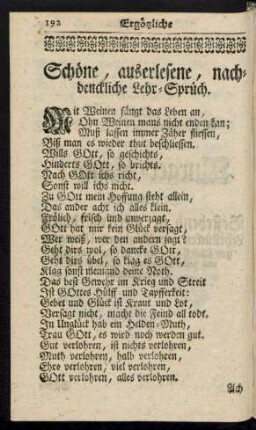 192 Ergözliche
Schöne, auserlesene, nach-
denckliche Lehr-Sprüch.
Mit Weinen fängt das Leben an,
Ohn Weinen mans nicht enden kan;
Muß lassen immer Zäher fliessen,
Biß man es wieder thut beschliessen.
Wills GOtt, so geschichts,
Hinderts GOtt, so brichts.
Nach GOtt ichs richt,
Sonst will ichs nicht.
Zu GOtt mein Hoffnung steht allein,
Das ander acht ich alles klein.
Frölich, frisch und unverzagt,
GOtt hat mir kein Glück versagt,
Wer weiß, wer den andern jagt?
Geht dirs wol, so dancke GOtt,
Geht dirs übel, so klag es GOtt,
Klag sonst niemand deine Noth.
Das best Gewehr im Krieg und Streit
Ist GOttes Hülff und Tapfferkeit:
Gebet und Glück ist Kraut und Lot,
Versagt nicht, macht die Feind all todt.
In Unglück hab ein Helden-Muth,
Trau GOtt, es wird noch werden gut.
Gut verlohren, ist nichts verlohren,
Muth verlohren, halb verlohren,
Ehre verlohren, viel verlohren,
GOtt verlohren, alles verlohren.
Ach